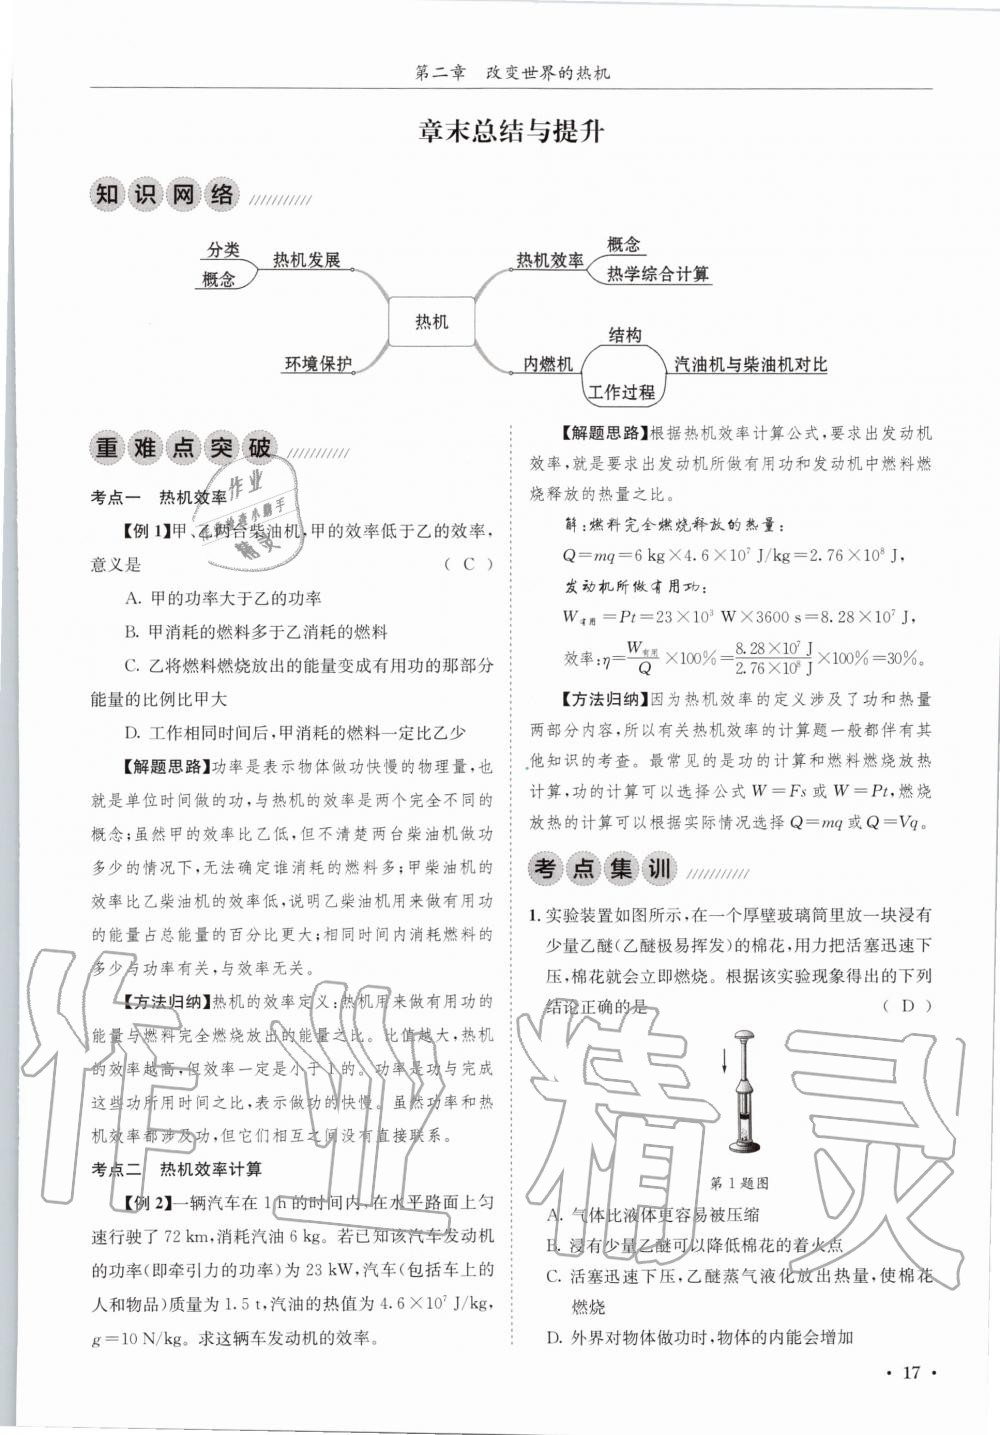 第二章 改变世界的热机
章末总结与提升
知识网络
分类
概念
热机发展
环境保护
热机
热机效率
概念
热学综合计算
内燃机
结构
工作过程
汽油机与柴油机对比
重难点突破
考点一 热机效率
【例 1】甲、乙两台柴油机,甲的效率低于乙的效率,
意义是 ( C )
A. 甲的功率大于乙的功率
B. 甲消耗的燃料多于乙消耗的燃料
C. 乙将燃料燃烧放出的能量变成有用功的那部分
能量的比例比甲大
D. 工作相同时间后,甲消耗的燃料一定比乙少
【解题思路】功率是表示物体做功快慢的物理量,也
就是单位时间做的功,与热机的效率是两个完全不同的
概念;虽然甲的效率比乙低,但不清楚两台柴油机做功
多少的情况下,无法确定谁消耗的燃料多;甲柴油机的
效率比乙柴油机的效率低,说明乙柴油机用来做有用功
的能量占总能量的百分比更大;相同时间内消耗燃料的
多少与功率有关,与效率无关。
【方法归纳】热机的效率定义:热机用来做有用功的
能量与燃料完全燃烧放出的能量之比。比值越大,热机
的效率越高,但效率一定是小于1的。功率是功与完成
这些功所用时间之比,表示做功的快慢。虽然功率和热
机效率都涉及功,但它们相互之间没有直接联系。
考点二 热机效率计算
【例 2】一辆汽车在 1 h 的时间内,在水平路面上匀
速行驶了 72 km,消耗汽油 6 kg。若已知该汽车发动机
的功率(即牵引力的功率)为 23 kW,汽车(包括车上的
人和物品)质量为 1.5 t,汽油的热值为 4.6×10⁷ J/kg,
g=10 N/kg。求这辆车发动机的效率。
【解题思路】根据热机效率计算公式,要求出发动机
效率,就是要求出发动机所做有用功和发动机中燃料燃
烧释放的热量之比。
解:燃料完全燃烧释放的热量:
Q=mq=6 kg×4.6×10⁷ J/kg=2.76×10⁸ J,
发动机所做有用功:
W有用=Pt=23×10³ W×3600 s=8.28×10⁷ J,
效率:η=W有用/Q×100%=8.28×10⁷ J/2.76×10⁸ J×100%=30%。
【方法归纳】因为热机效率的定义涉及了功和热量
两部分内容,所以有关热机效率的计算题一般都伴有其
他知识的考查。最常见的是功的计算和燃料燃烧放热
计算,功的计算可以选择公式 W=Fs 或 W=Pt,燃烧
放热的计算可以根据实际情况选择 Q=mq 或 Q=Vq。
考点集训
1. 实验装置如图所示,在一个厚壁玻璃筒里放一块浸有
少量乙醚(乙醚极易挥发)的棉花,用力把活塞迅速下
压,棉花就会立即燃烧。根据该实验现象得出的下列
结论正确的是 ( D )
第 1 题图
A. 气体比液体更容易被压缩
B. 浸有少量乙醚可以降低棉花的着火点
C. 活塞迅速下压,乙醚蒸气液化放出热量,使棉花
燃烧
D. 外界对物体做功时,物体的内能会增加
· 17 ·
作业精灵